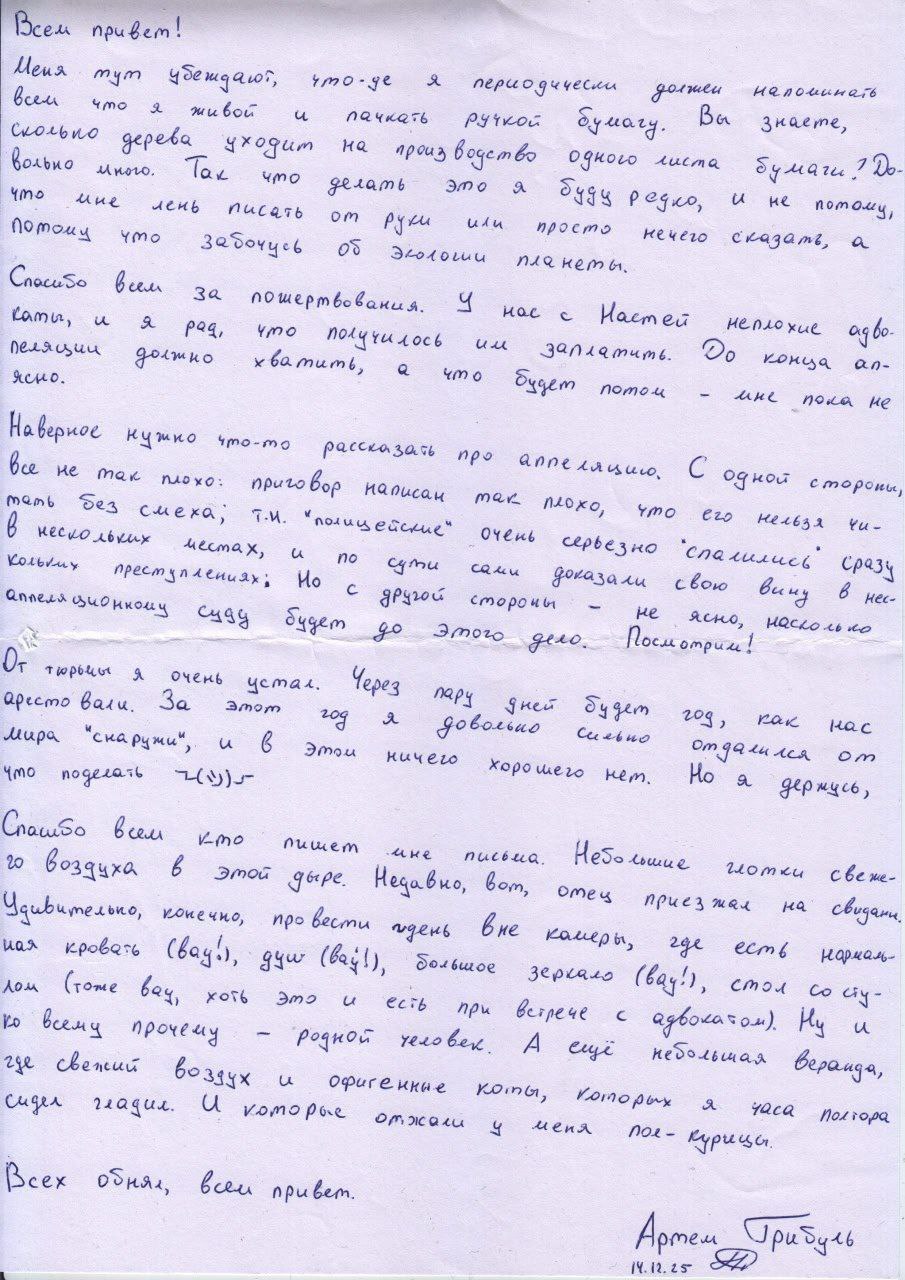 Всем привет!
Меня тут убеждают, что-де я периодически должен напоминать
всем что я живой и пачкать ручкой бумагу. Вы знаете,
сколько дерева уходит на производство одного листа бумаги? До-
вольно много. Так что делать это я буду редко, и не потому,
что мне лень писать от руки или просто нечего сказать, а
потому что забочусь об экологии планеты.
Спасибо всем за пожертвования. У нас с Настей неплохие адво-
каты, и я рад, что получилось им заплатить. До конца ап-
пеляции должно хватить, а что будет потом - мне пока не
ясно.
Наверное нужно что-то рассказать про аппеляцию. С одной стороны,
все не так плохо: приговор написан так плохо, что его нельзя чи-
тать без смеха; т.н. "полицейские" очень серьезно "спалились" сразу
в нескольких местах, и по сути сами доказали свою вину в нес-
кольких преступлениях; Но с другой стороны - не ясно, насколько
аппеляционному суду будет до этого дело. Посмотрим!
От тюрьмы я очень устал. Через пару дней будет год, как нас
арестовали. За этот год я довольно сильно отдалился от
мира "снаружи", и в этом ничего хорошего нет. Но я держусь,
что поделать ¯\(ツ)/¯
Спасибо всем кто пишет мне письма. Небольшие глотки свеже-
го воздуха в этой дыре. Недавно, вот, отец приезжал на свидани.
Удивительно, конечно, провести день вне камеры, где есть нормаль-
ная кровать (вау!), душ (вау!), большое зеркало (вау!), стол со сту-
лом (тоже вау, хоть это и есть при встрече с адвокатом). Ну и
ко всему прочему - родной человек. А ещё небольшая веранда,
где свежий воздух и офигенные коты, которых я часа полтора
сидел гладил. И которые отжали у меня пол-курицы.
Всех обнял, всем привет.
Артем Грибуль
14.12.25